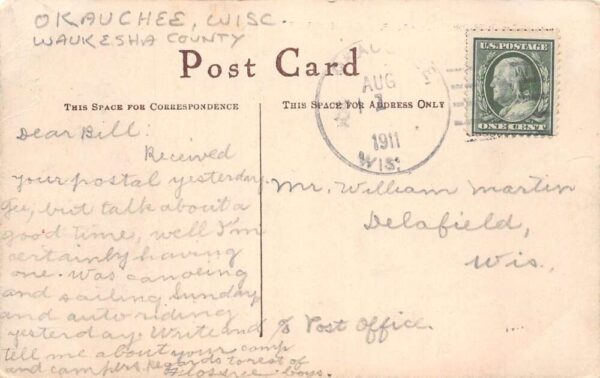 OKAUCHEE, WISC.
WAUKESHA COUNTY
Post Card
THIS SPACE FOR CORRESPONDENCE
THIS SPACE FOR ADDRESS ONLY
AUG
1
1911
WIS.
U.S. POSTAGE
ONE CENT
Dear Bill:
Received
your postal yesterday.
Gee, but talk about a
good time, well I'm
certainly having
one. Was canoeing
and sailing Sunday
and auto riding
yesterday. Write and
tell me about your camp
and campers. Regards to rest of
boys.
Mr. William Martin
Delafield,
Wis.,
c/o Post Office.